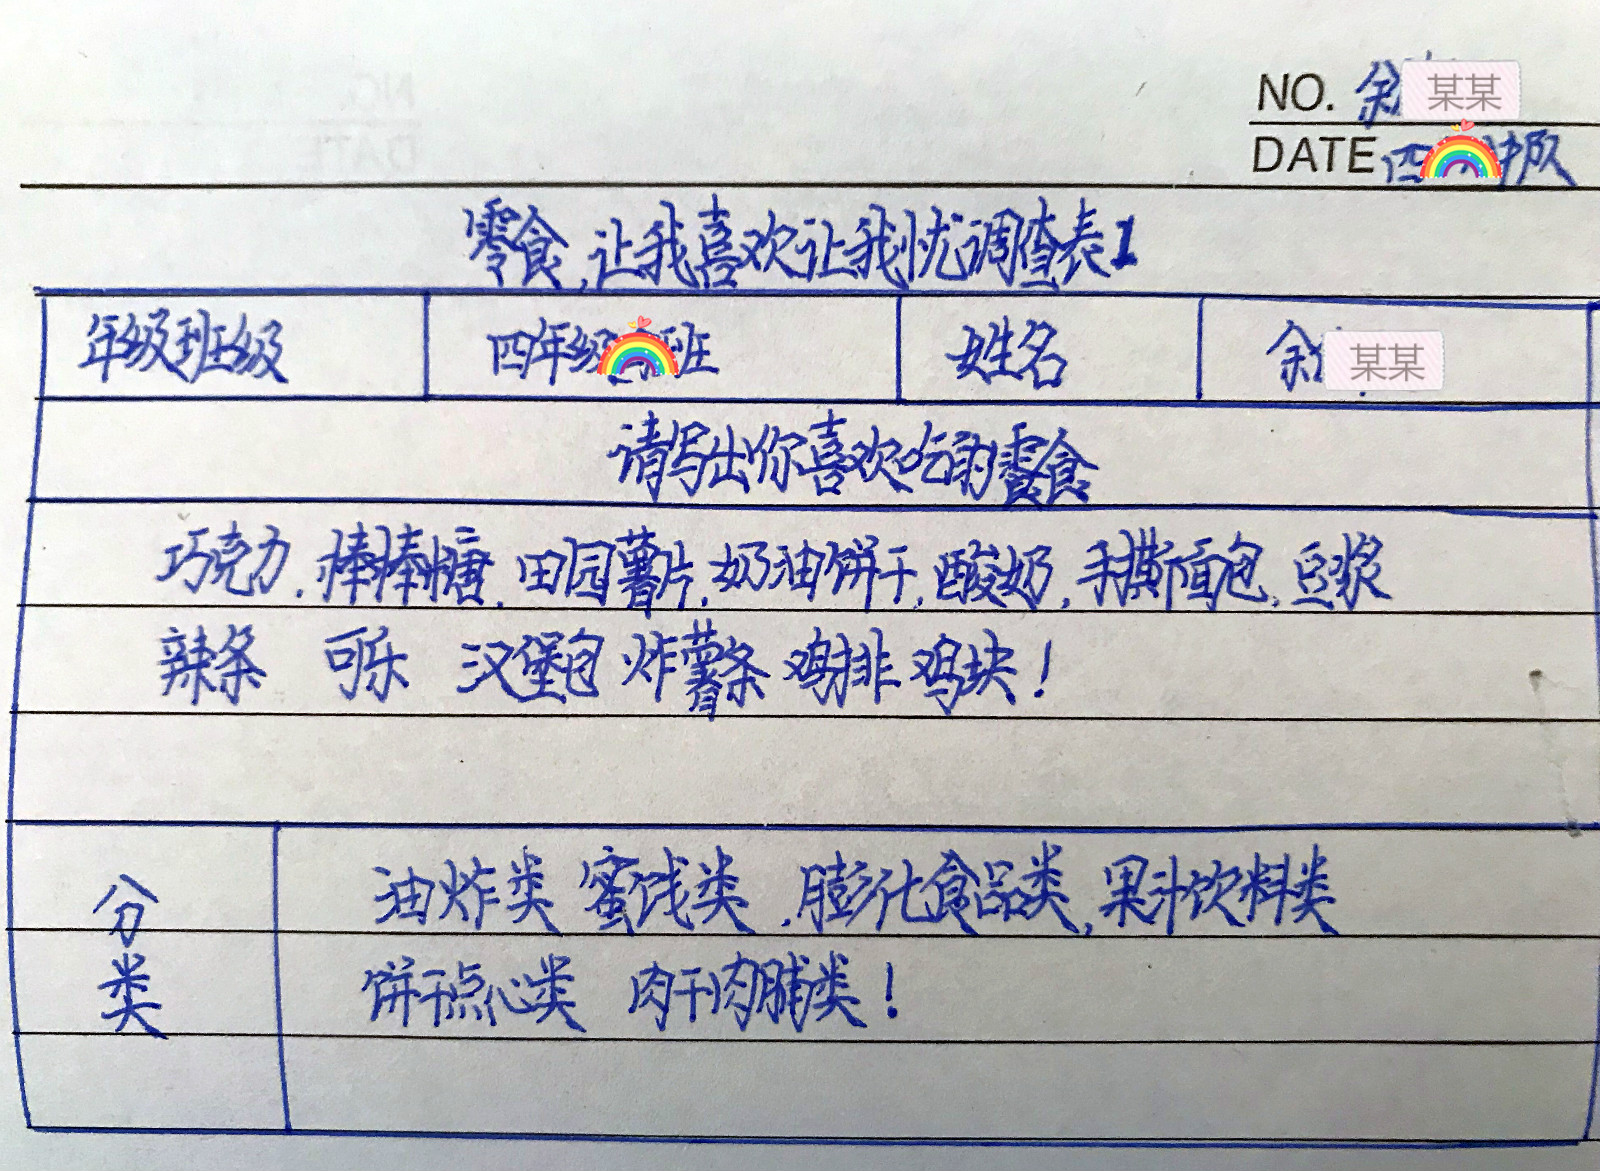 NO. 余某某
DATE 四中队
零食,让我喜欢让我忧调查表1
年级班级 四年级班 姓名 余某某
请写出你喜欢吃的零食
巧克力.棒棒糖.田园薯片.奶油饼干,酸奶,手撕面包,豆浆
辣条 可乐 汉堡包 炸薯条 鸡排 鸡块!
分类
油炸类 蜜饯类 .膨化食品类,果汁饮料类
饼干点心类 肉干肉脯类!